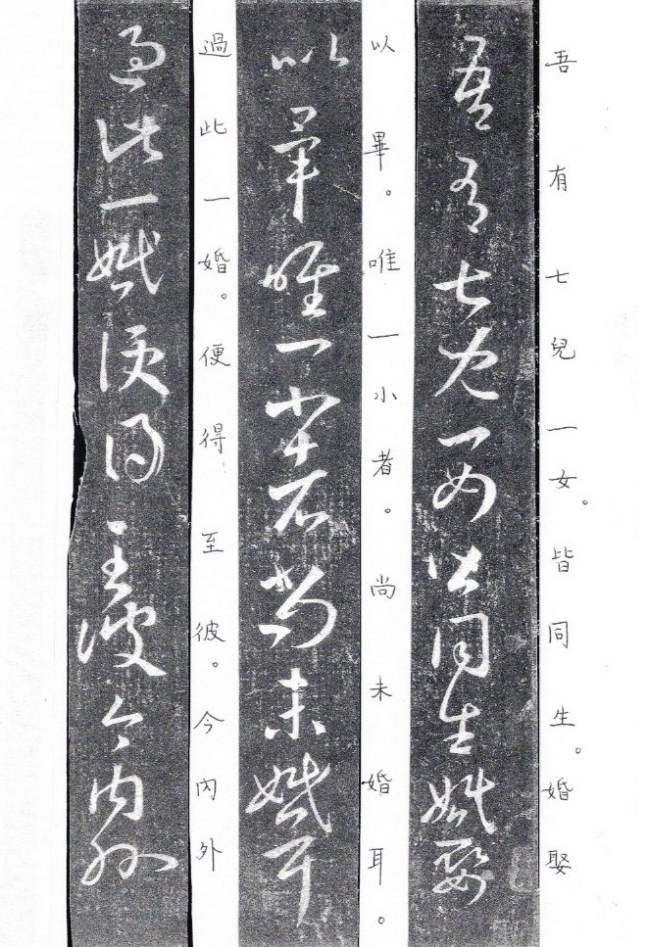 吾有七兒一女皆同生婚娶
吾有七兒一女。皆同生。婚娶
以畢唯一小者尚未婚耳
以畢。唯一小者。尚未婚耳。
過此一婚便得至彼今內外
過此一婚。便得至彼。今內外